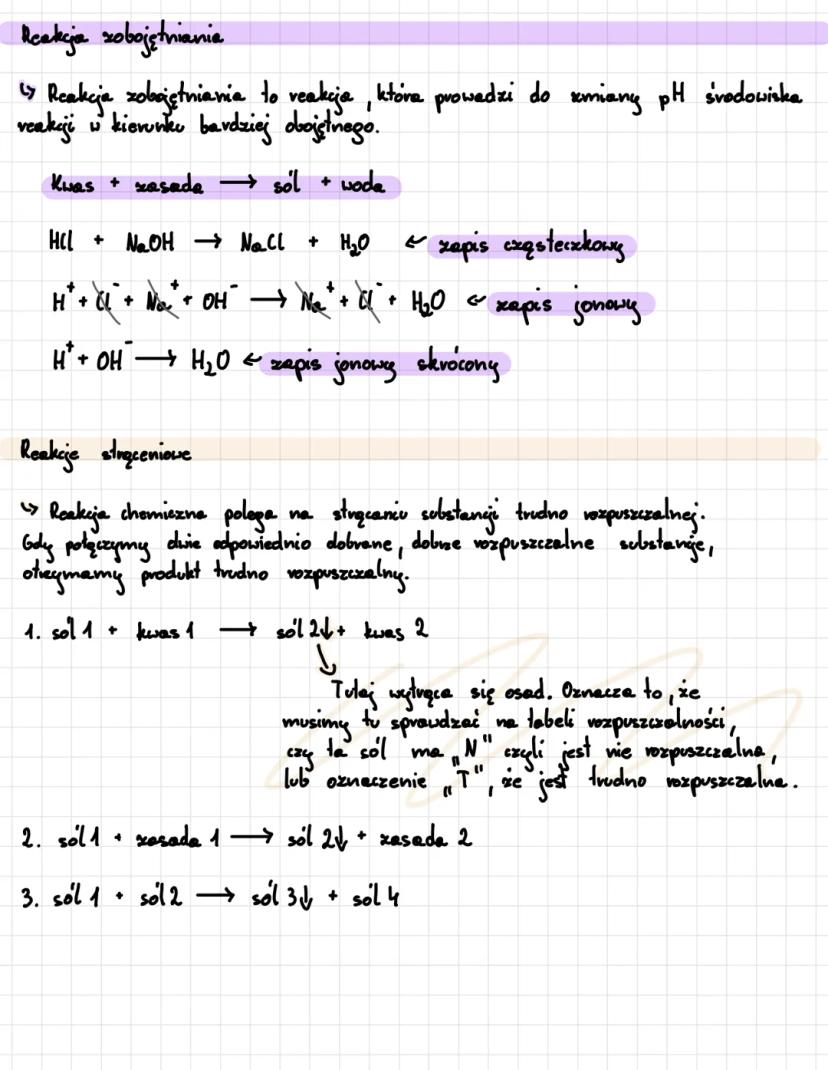 Reakcja zobojętniania
↳ Reakcja zobojętniania to reakcja, która prowadzi do zmiany pH środowiska
reakcji w kierunku bardziej obojętnego.
Kwas + zasada → sól + woda
HCl + NaOH → NaCl + H₂O ← zapis cząsteczkowy
H⁺ + Cl⁻ + Na⁺ + OH⁻ → Na⁺ + Cl⁻ + H₂O ← zapis jonowy
H⁺ + OH⁻ → H₂O ← zapis jonowy skrócony
Reakcje strąceniowe
↳ Reakcja chemiczna polega na strącaniu substancji trudno rozpuszczalnej.
Gdy połączymy dwie odpowiednio dobrane, dobrze rozpuszczalne substancje,
otrzymamy produkt trudno rozpuszczalny.
1. sól 1 + kwas 1 → sól 2↓ + kwas 2
Tutaj wytrąca się osad. Oznacza to, że
musimy tu sprawdzać na tabeli rozpuszczalności,
czy ta sól ma „N" czyli jest nie rozpuszczalna,
lub oznaczenie „T", że jest trudno rozpuszczalna.
2. sól 1 + zasada 1 → sól 2↓ + zasada 2
3. sól 1 + sól 2 → sól 3↓ + sól 4